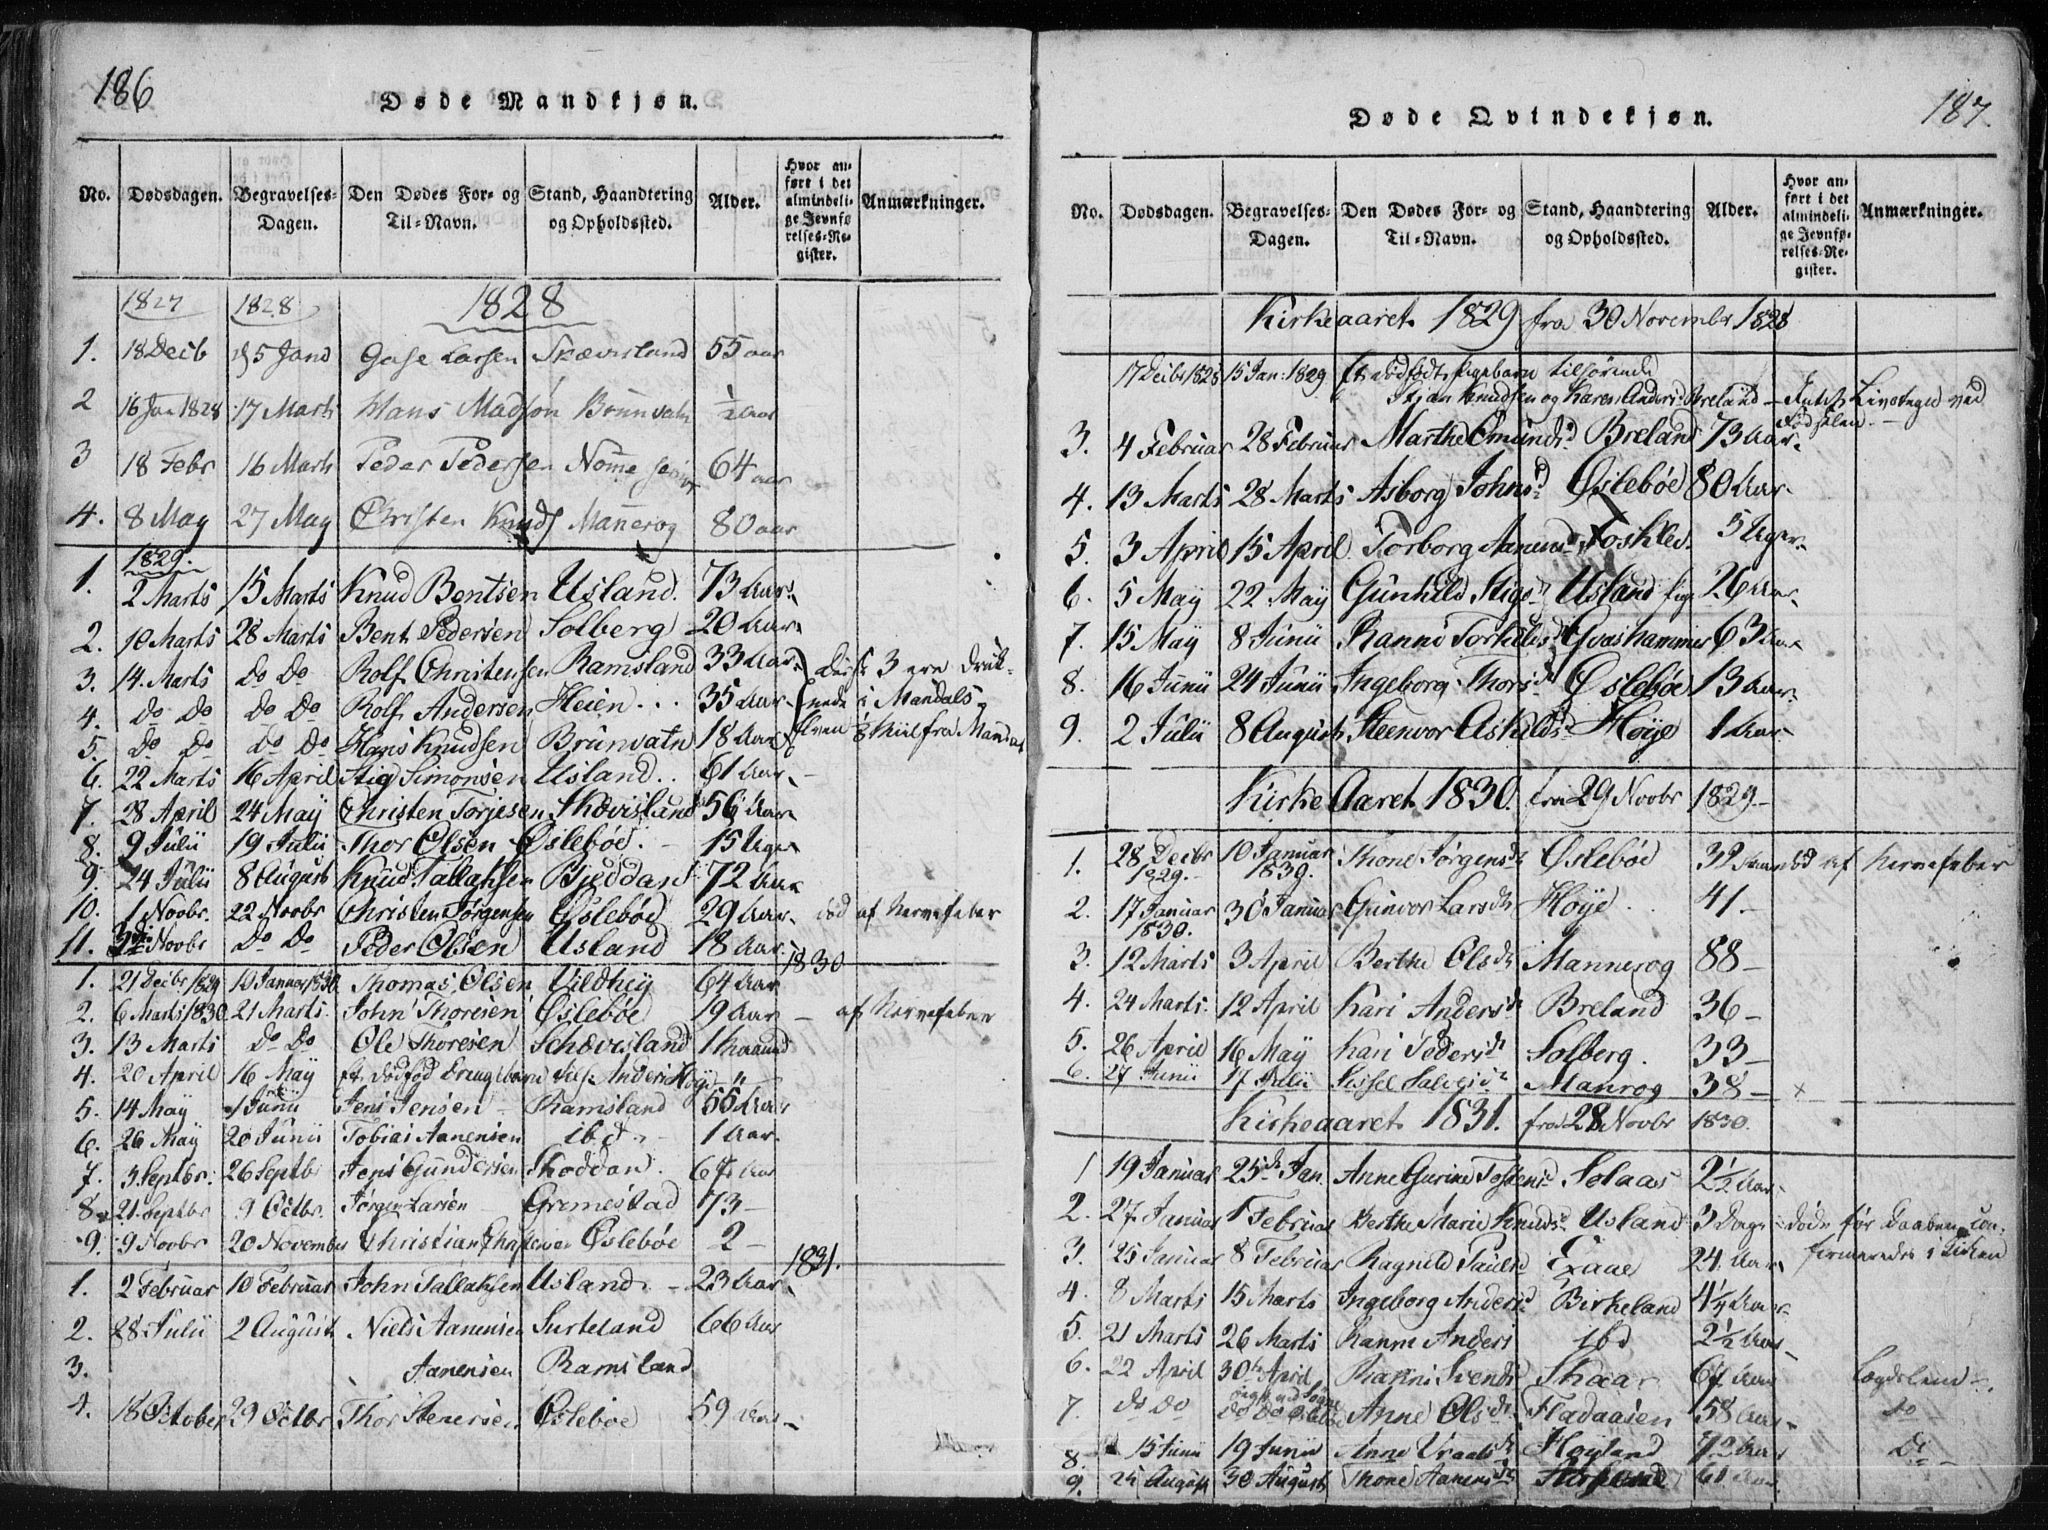 186
Døde Mandkjøn.
No. Dødsdagen. Begravelses-Dagen. Den Dødes For- og Til-Navn. Stand, Haandtering og Opholdssted. Alder. Hvor anført i det almindelige Jevnførelses-Register. Anmærkninger.
1827 1828 1828
1. 18 Decb 5 Jan Larsen Skævisland 55 aar
2 16 Jan 1828 17 Marts Hans Madsøn ½ Aar
3 18 Febr 16 Marts Peder Pedersen Nome 64 aar
4. 8 May 27 May Christen Knuds Mannerog 80 aar
1829.
1. 2 Marts 15 Marts Knud Bentsen Usland. 73 Aar.
2. 10 Marts 28 Marts Bent Pedersen Solberg 20 Aar
3. 14. Marts Do Do Rolf Christensen Ramsland 33 Aar. Disse 3 ere druk-
4. Do Do Do Do Rolf Andersen Heien . . . 35 Aar nede i Mandals
5. Do Do Do Do Hans Knudsen Brunvatn 18 Aar Elven fra Mandal
6. 22 Marts 16 April Stig Simonsen Usland . . 61 Aar
7. 28 April 24 May Christen Torjesen Skævisland 56 Aar
8. 9 Julii 19 Julii Thor Olsen Øslebøe. 15 Uger
9. 24 Julii 8 August Knud Tallaksen Bjeddan 72 Aar
10. 1 Novbr. 22 Novbr Christen Jørgensen Øslebøe 29 Aar. død af Nervefeber
11. 3di Novbr Do Do Peder Olsen Usland 18 Aar.
1830
1. 21 Decbr 1829 10 Januar 1830. Thomas Olsen Vildhey 64 Aar
2. 6 Marts 1830 21 Marts. John Thoresen Øslebøe 19 Aar — af Nervefeber
3. 13 Marts Do Do Ole Thoresen Schævisland 1 Maaned
4. 20 April 16 May et dødfød Drengebarn Anders Høye "
5. 14 May 1 Junii Jens Jensen Ramsland 55 Aar
6. 26 May 20 Junii Tobias Aanensen ibd. 1 Aar.
7. 3 Septbr. 26 Septbr Jens Gundersen Skoddan. 67 Aar
8. 21 Septbr 9 Octbr. Jørgen Larsen Gremestad 73 —
9. 9 Novbr 20 November Christian Øslebøe 2 —
1831.
1. 2 Februar 10 Februar John Tallaksen Usland. — 23 Aar
2. 28 Julii 2 August Niels Aanensen Surteland 66 Aar
3. Aanensen Ramsland
4. 18 October 29 Octbr Thor Stenersen Øslebøe 59 Aar
187.
Døde Qvindekjøn.
No. Dødsdagen. Begravelses-Dagen. Den Dødes For- og Til-Navn. Stand, Haandtering og Opholdssted. Alder. Hvor anført i det almindelige Jevnførelses-Register. Anmærkninger.
Kirkeaaret 1829 fra 30 November 1828
17 Decbr 1828 15 Jan: 1829 et dødfødt Pigebarn tilhørende
Knudsen og Karen Anders Breland — Livstegn ved Fødselen. —
3. 4 Februar 28 Februar Marthe Omundsd Breland 73 Aar.
4. 13 Marts 28 Marts Asborg Johnsd Øslebøe 80 Aar
5. 3 April 15 April Torborg Aanensd Foskled. 5 Uger.
6. 5 May 22 May Gunhild Stigsd Usland 26 Aar
7. 15 May 8 Junii Ranni Torkildsd Qvashammer 63 Aar
8. 16 Junii 24 Junii Ingeborg Thorsd Øslebøe 13 Aar
9. 2 Julii 8 August Steenvor Askildsd Høye 1 Aar
Kirke Aaret 1830. fra 29 Novbr 1829 —
1. 28 Decbr 1829. 10 Januar 1830. Thone Jørgensd Øslebøe 32 Aar død af Nervefeber
2. 17 Januar 1830. 30 Januar Gunvor Larsd Høye . . 41. —
3. 12 Marts 3 April Berthe Olsd Mannerog 88 —
4. 24 Marts. 12 April Kari Andersd Breland 36 —
5. 26 April 16 May Kari Pedersd Solberg. 33 —
6. 27 Junii 17 Julii Sissel Salvesd Manrog 38 — x
Kirkeaaret 1831. fra 28 Novbr 1830.
1 19 Januar 25de Jan. Anne Gurine Tostensd Solaas 2½ Aar
2. 27 Januar 1 Februar Berthe Marie Knudsd Usland 3 Dage døde før Daaben con-
3. 25 Januar 8 Februar Ragnild Paulsd Eaae 24. Aar firmeredes i Kirken
4. 8 Marts 15 Marts Ingeborg Andersd Birkeland 4¼ Aar
5. 21 Marts 26 Marts Ranni Anders ibd 2½ Aar
6. 22 April 30te April Ranni Svends Skaar 64 Aar Lægdslem
7. Do Do Do Do Anne Olsd Fladaasen 58 Aar do
8. 15 Junii 19 Junii Anne Høyland Aar Do
9. 25 August 30 August Thone Aanensd 61 Aar